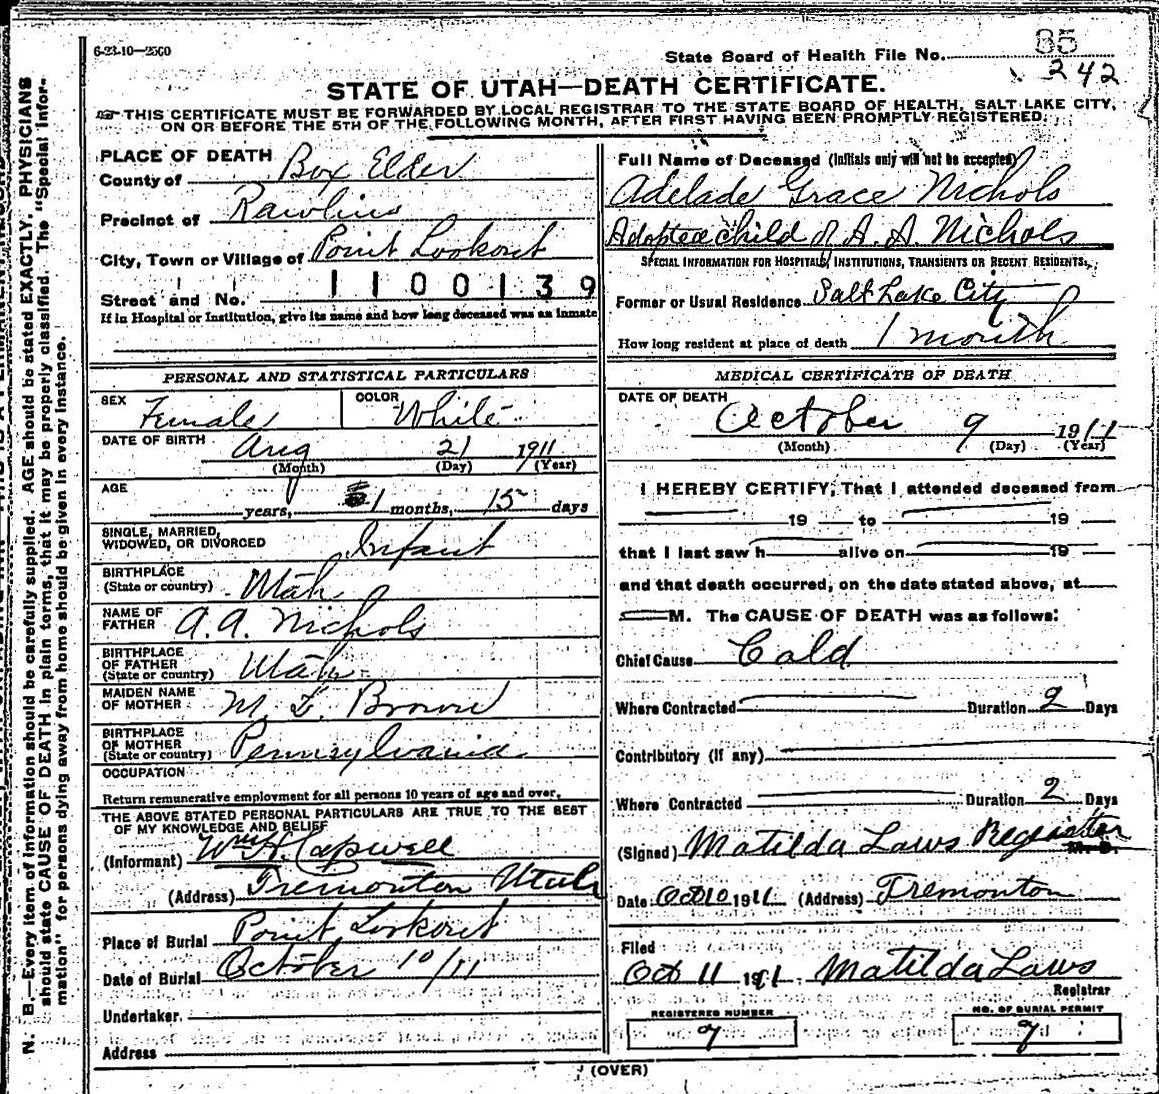 6-23-10—2500
State Board of Health File No. 85
242
STATE OF UTAH—DEATH CERTIFICATE.
THIS CERTIFICATE MUST BE FORWARDED BY LOCAL REGISTRAR TO THE STATE BOARD OF HEALTH, SALT LAKE CITY,
ON OR BEFORE THE 5TH OF THE FOLLOWING MONTH, AFTER FIRST HAVING BEEN PROMPTLY REGISTERED.
PLACE OF DEATH
County of Box Elder
Precinct of Rawlins
City, Town or Village of Point Lookout
1100139
Street and No.
If in Hospital or Institution, give its name and how long deceased was an inmate
Full Name of Deceased (Initials only will not be accepted)
Adelade Grace Nichols
Adopted child of A. A. Nichols
SPECIAL INFORMATION FOR HOSPITALS, INSTITUTIONS, TRANSIENTS OR RECENT RESIDENTS.
Former or Usual Residence Salt Lake City
How long resident at place of death 1 month
PERSONAL AND STATISTICAL PARTICULARS
SEX Female COLOR White
DATE OF BIRTH Aug 21 1911
(Month) (Day) (Year)
AGE
years, 1 months, 15 days
SINGLE, MARRIED,
WIDOWED, OR DIVORCED Infant
BIRTHPLACE
(State or country) Utah
NAME OF
FATHER A. A. Nichols
BIRTHPLACE
OF FATHER
(State or country) Utah
MAIDEN NAME
OF MOTHER M. E. Brown
BIRTHPLACE
OF MOTHER
(State or country) Pennsylvania
OCCUPATION
Return remunerative employment for all persons 10 years of age and over.
THE ABOVE STATED PERSONAL PARTICULARS ARE TRUE TO THE BEST
OF MY KNOWLEDGE AND BELIEF
(Informant) Wm H. Capwell
(Address) Tremonton Utah
Place of Burial Point Lookout
Date of Burial October 10/11
Undertaker
Address
MEDICAL CERTIFICATE OF DEATH
DATE OF DEATH
October 9 1911
(Month) (Day) (Year)
I HEREBY CERTIFY, That I attended deceased from
19 to 19
that I last saw h alive on 19
and that death occurred, on the date stated above, at
M. The CAUSE OF DEATH was as follows:
Chief Cause Cold
Where Contracted Duration 2 Days
Contributory (if any)
Where Contracted Duration 2 Days
(Signed) Matilda Laws Registrar M. D.
Date Oct 10 1911 (Address) Tremonton
Filed
Oct 11 1911 Matilda Laws
Registrar
REGISTERED NUMBER
9
NO. OF BURIAL PERMIT
9
(OVER)
N. B.—Every item of information should be carefully supplied. AGE should be stated EXACTLY. PHYSICIANS
should state CAUSE OF DEATH in plain terms, that it may be properly classified. The "Special Infor-
mation" for persons dying away from home should be given in every instance.